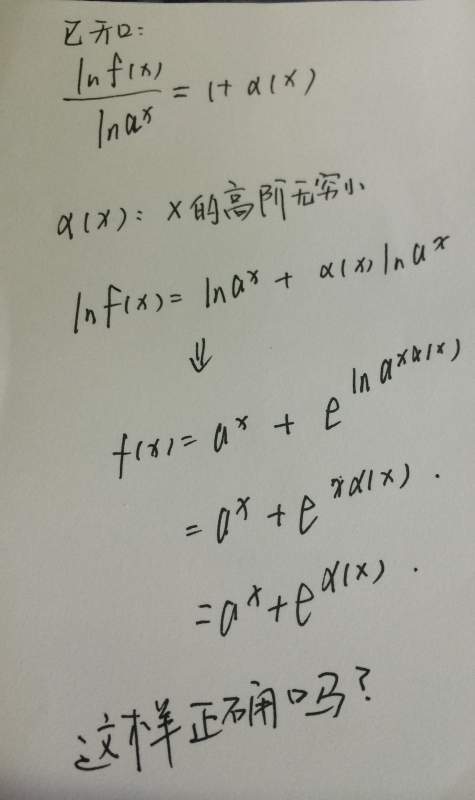 已知:
ln f(x) / ln a^x = 1 + α(x)
α(x): x的高阶无穷小
ln f(x) = ln a^x + α(x) ln a^x
⇓
f(x) = a^x + e^{ln a^{xα(x)}}
= a^x + e^{xα(x)}.
= a^x + e^{α(x)}.
这样正确吗?